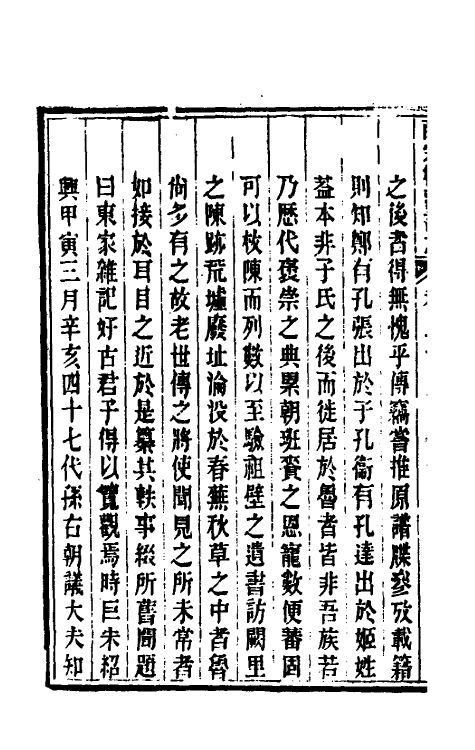 之後者得無愧乎傳竊嘗推原譜牒參攷載籍
則知鄭有孔張出於子孔衞有孔達出於姬姓
葢本非子氏之後而徙居於魯者皆非吾族若
乃歷代褒崇之典累朝班賚之恩寵數便蕃固
可以枚陳而列數以至驗祖壁之遺書訪闕里
之陳跡荒墟廢址淪没於春蕪秋草之中者魯
尚多有之故老世傳之將使聞見之所未常者
如接於耳目之近於是纂其軼事綴所舊聞題
曰東家雜記好古君子得以覽觀焉時巨宋紹
興甲寅三月辛亥四十七代孫右朝議大夫知